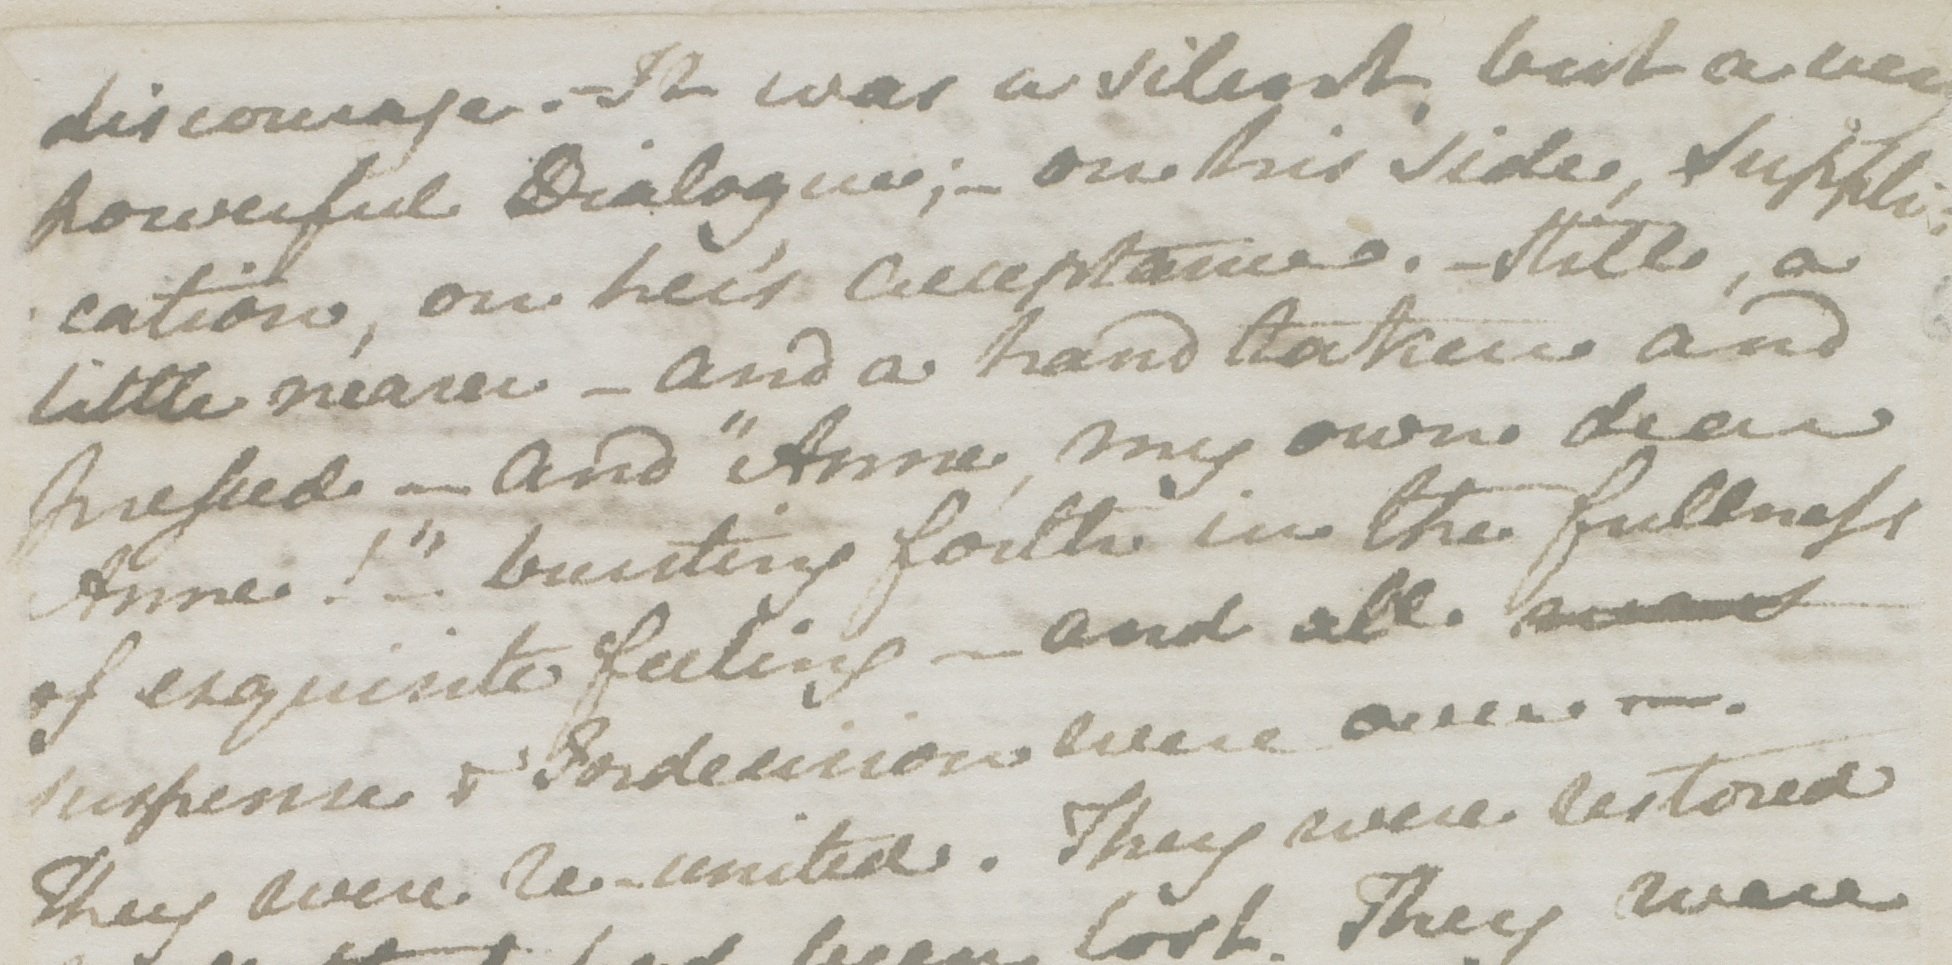 discourage. – It was a silent, but a very
powerful Dialogue; – on his side, Suppli-
cation, on her's acceptance. – Still, a
little nearer – and a hand taken and
pressed – and "Anne, my own dear
Anne!" – bursting forth in the fullness
of exquisite feeling – and all
suspense & Indecision were over –.
They were re-united. They were restored
had been lost. They were